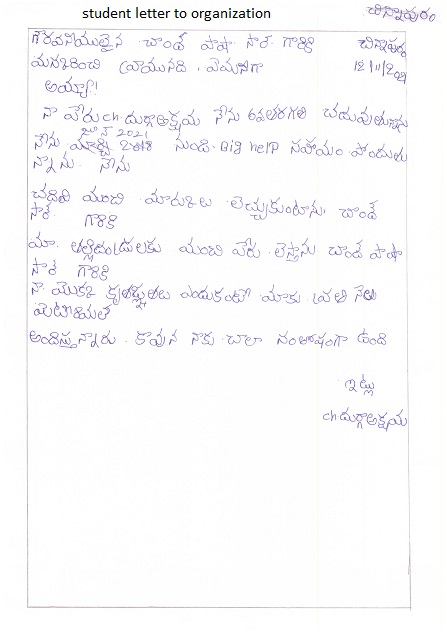 student letter to organization
చిన్నాపురం
గౌరవనీయులైన చాంద్ పాషా సార్ గారికి చిన్నాపురం
నమస్కరించి వ్రాయునది. ఏమనగా 12/11/2021
అయ్యా!
నా పేరు ch దుర్గాఅక్షయ నేను 6వతరగతి చదువుతున్నాను
జూన్ 2021
నేను 2018 నుండి Big help సహాయం పొందుతు
న్నాను. నేను
చదివి మంచి మార్కులు తెచ్చుకుంటాను. చాంద్
సార్ గారికి
మా తల్లిదండ్రులకు మంచి పేరు తెస్తాను చాంద్ పాషా
సార్ గారికి
నా యొక్క కృతజ్ఞతలు ఎందుకంటే మాకు ప్రతి నెల
మెటీరియల్
అందిస్తున్నారు. కావున నాకు చాలా సంతోషంగా ఉంది
ఇట్లు
ch దుర్గాఅక్షయ